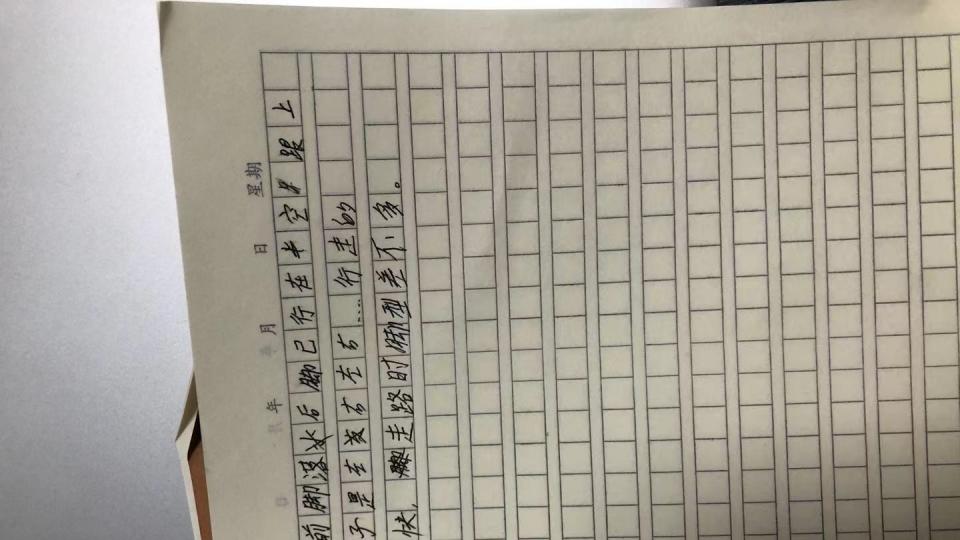 年 月 日 星期
前脚落水后脚已行在半空 跟上
子是左 右左右....行走的
快，走路时脚型差不多。